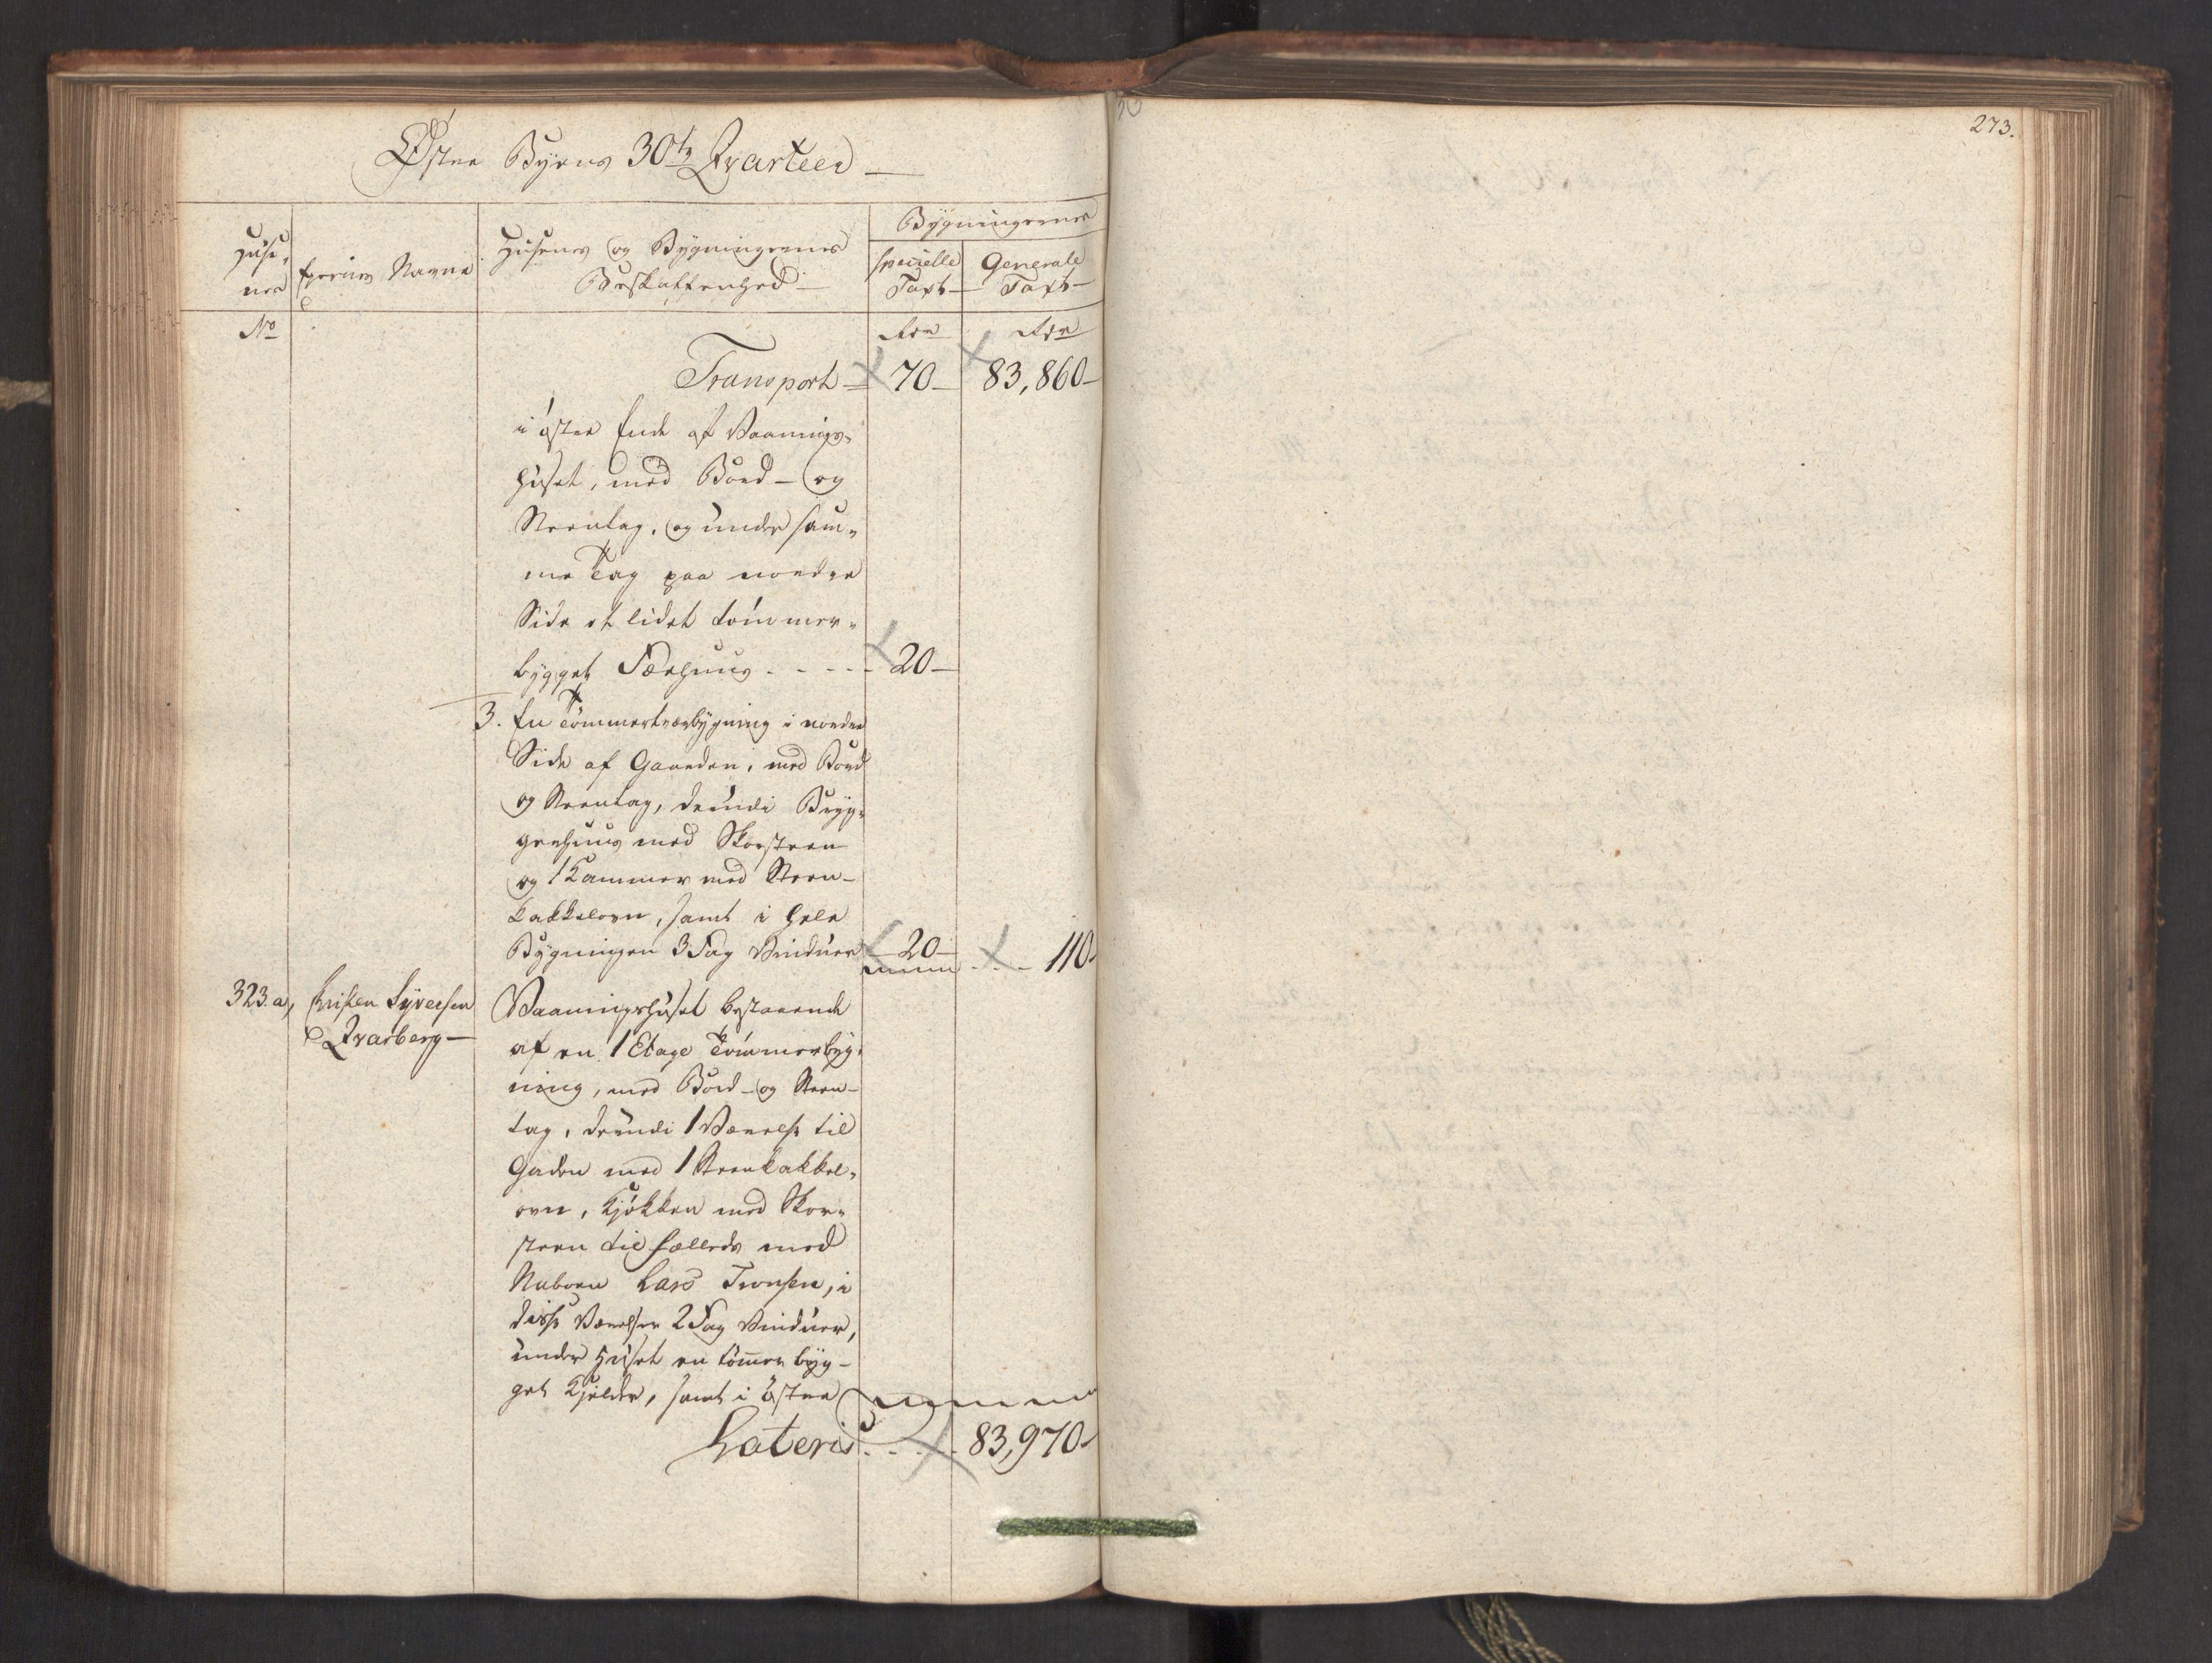 Øster Byens 30te Qvarteer
Bygningernes
Huse-
nes
Eyernes Navne
Husenes og Bygningernes
Beskaffenhed
specielle
Taxt
Generale
Taxt
No
Rdr
Rdr
Transport 70 83,860
i øster Ende af Vaanings-
huset, med Bord- og
Steentag, og under sam-
me Tag paa nordre
Side et lidet tømmer-
bygget Fæehuus - - - - 20
3. En Tømmertværbygning i nordre
Side af Gaarden, med Bord
og Steentag, derudi Bryg-
gerhuus med Skorsteen
og 1 Kammer med Steen-
kakkelovn, samt i hele
Bygningen 3 Fag Vinduer 20 - - 110
323.a, Christen Syversen
Qvarberg
Vaaningshuset bestaaende
af en 1 Etage Tømmerbyg-
ning, med Bord- og Steen-
tag, derudi 1 Værelse til
Gaden med 1 Steenkakkel-
ovn, Kjøkken med Skor-
steen til fælleds med
Naboen Lars Tronsen, i
disse Værelser 2 Fag Vinduer,
under Huset en tømmer byg-
get Kjelder, samt i østre
Lateris - - - 83,970
273.